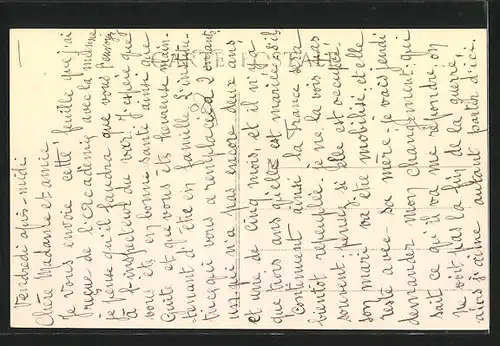 Vendredi après-midi
Chère Madame et amie
Je vous envoie cette feuille que j'ai
reçue de l'académie avec la même
je pense qu'il faudra que vous l'envoyez
à l'inspecteur du var. J'espère que
vous êtes en bonne santé ainsi que
et que vous êtes heureuse main-
tenant d'être en famille. L'institu-
trice qui vous a remplacée a 2 enfants
un qui n'a pas encore deux ans
et une de cinq mois, et il n'y a
que trois ans qu'elle est mariée, s'ils
continuent ainsi la France sera
bientôt repeuplée je ne la vois pas
souvent, pensez si elle est occupée
son mari va être mobilisé et elle
reste avec sa mère - je vais jeudi
demander mon changement, qui
sait ce qu'il va me répondre. on
ne voit pas la fin de la guerre,
alors j'aime autant partir d'ici.